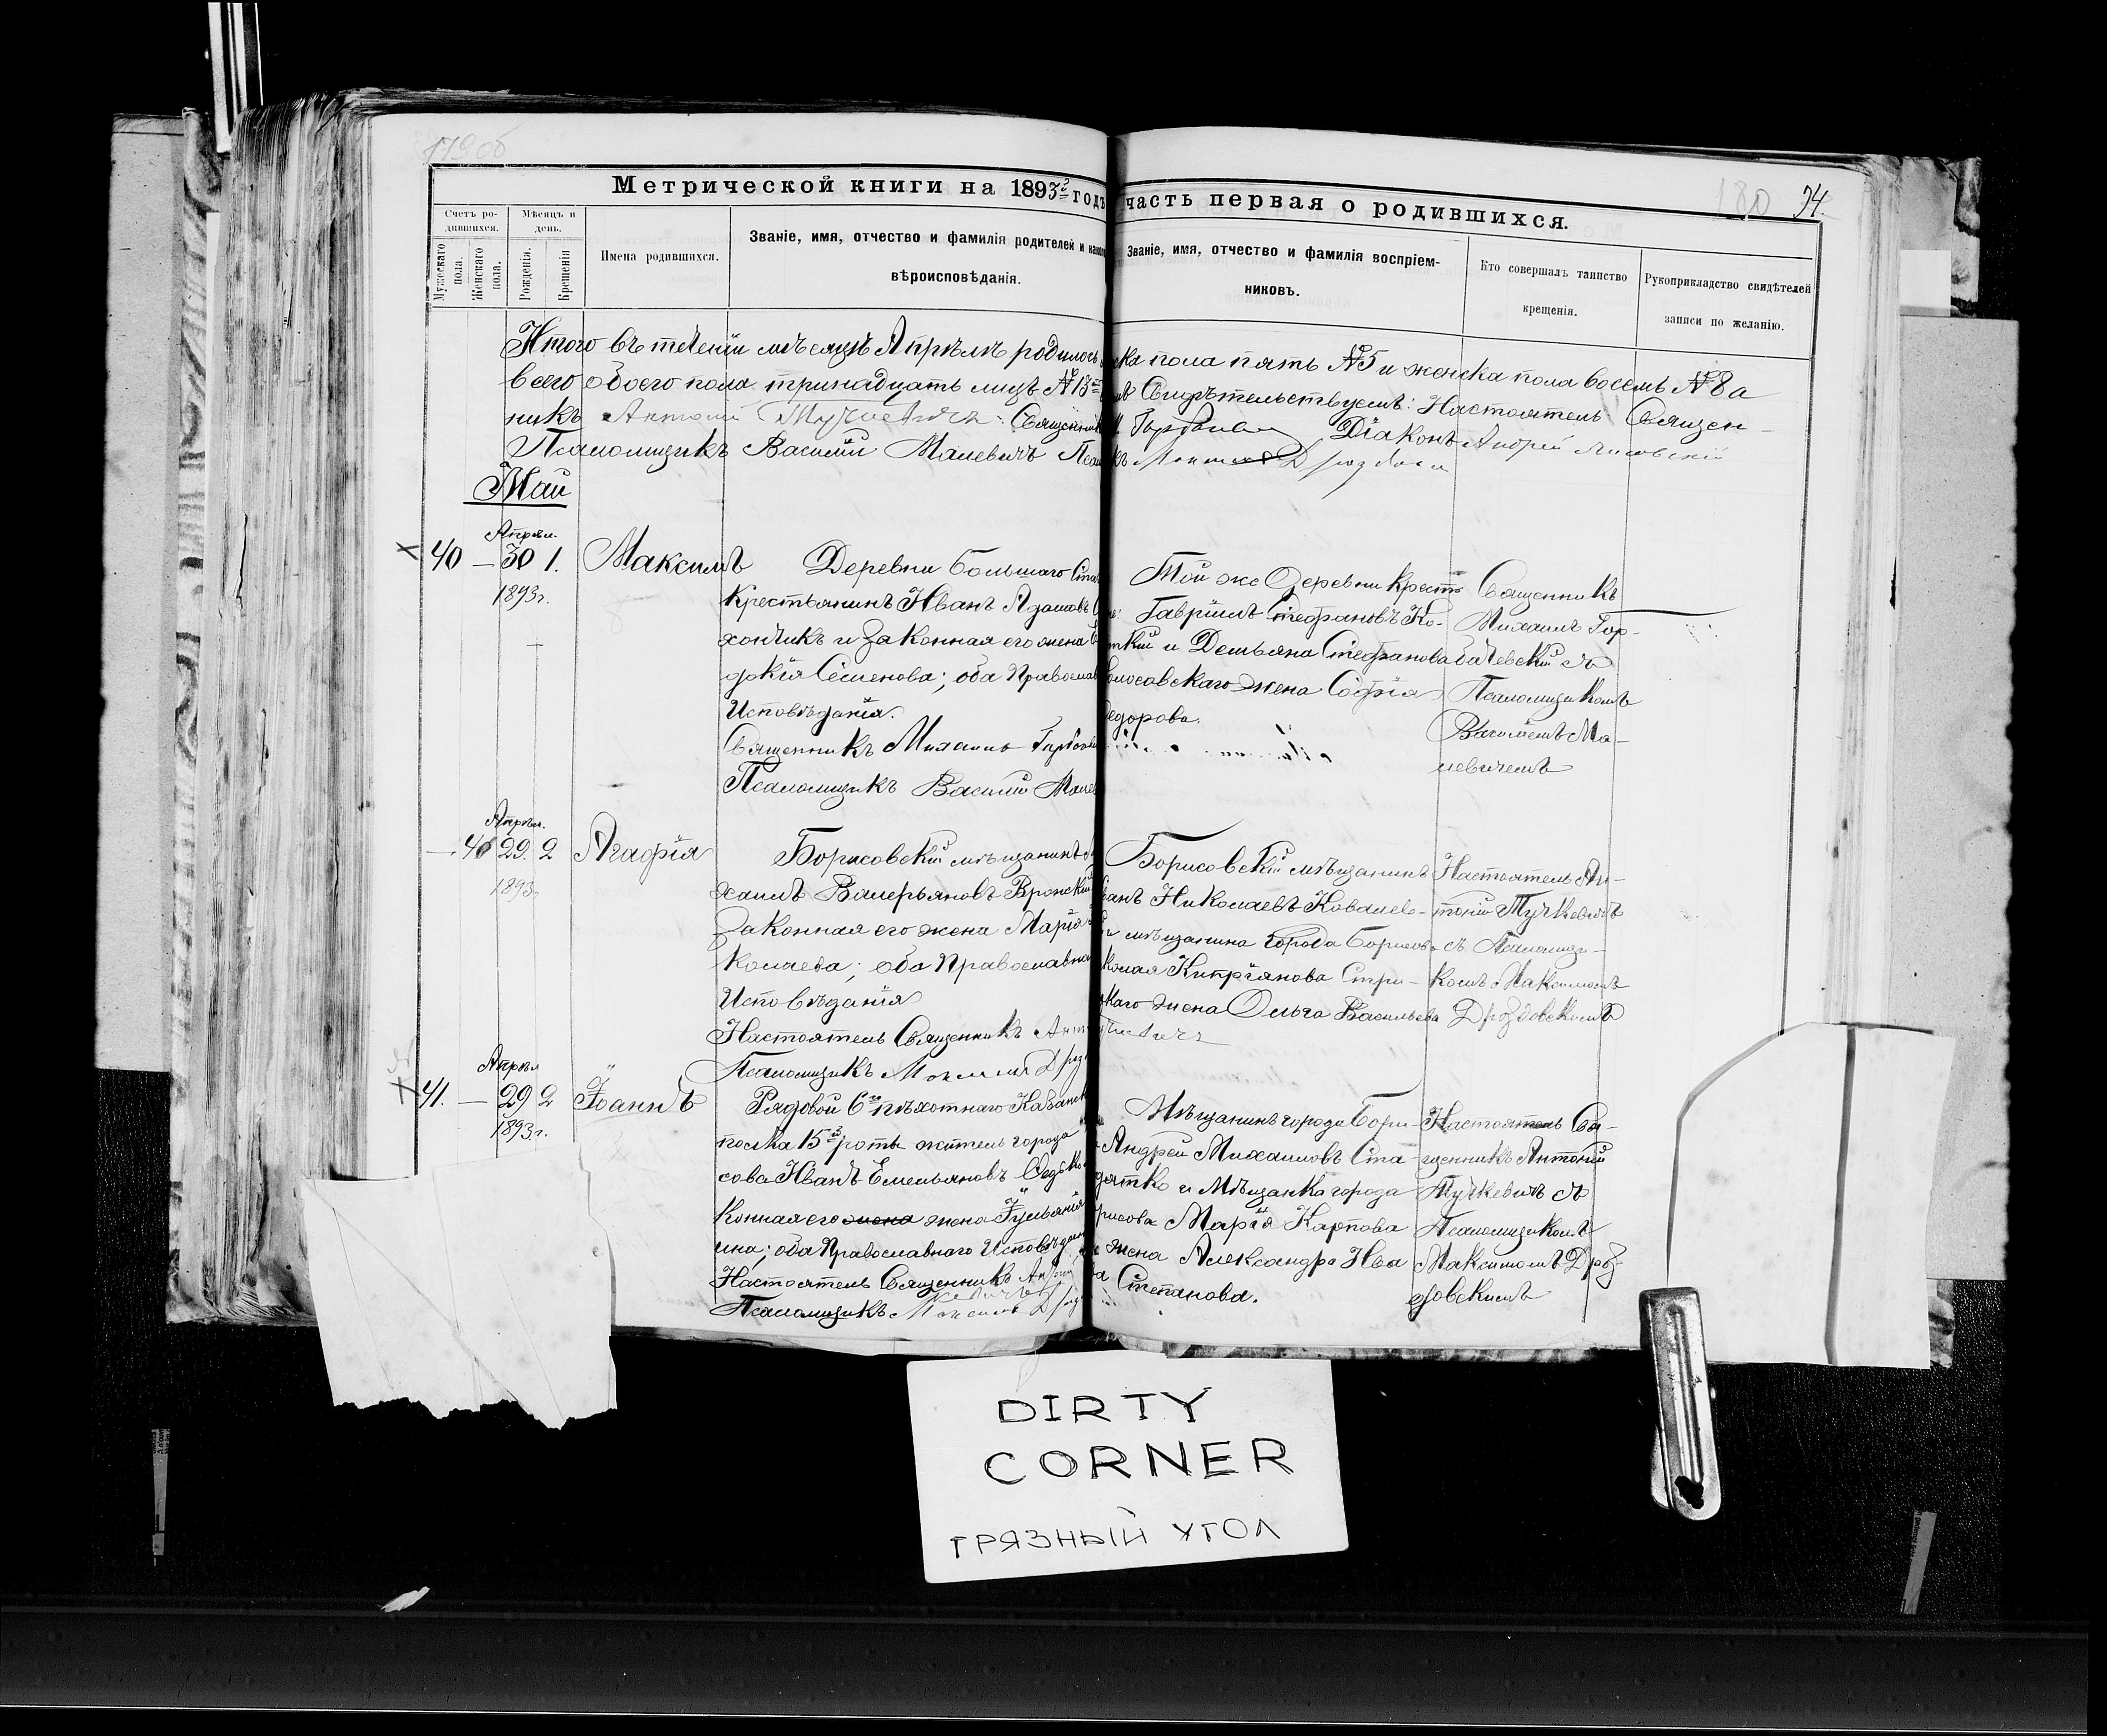 179об
180 94.
Метрической книги на 1893й годъ часть первая о родившихся.
Счетъ родившихся.
Мужескаго пола.
Женскаго пола.
Мѣсяцъ и день.
Рожденія.
Крещенія
Имена родившихся.
Званіе, имя, отчество и фамилія родителей и какого
вѣроисповѣданія.
Званіе, имя, отчество и фамилія воспріем-
никовъ.
Кто совершалъ таинство
крещенія.
Рукоприкладство свидѣтелей
записи по желанію.
Итого въ теченіи мѣсяцѣ Апрѣлѣ родилось ска пола пять №5 и женска пола восемь №8 а
всего обоего пола тринадцать лицъ №13 Свидѣтельствуемъ: Настоятель Священ-
никъ Антоній Тучкевичъ. Священникъ М. Діаконъ Андрей
Псаломщикъ Василій Малевичъ
Май
Апрѣл.
40 — 30 1. Максимъ
1893г.
Деревни Большаго Ста
Крестьянинъ Иванъ Адамовъ
хончикъ и законная его жена
докія Семенова; оба Православ
Исповѣданія.
Священникъ Михаилъ
Псаломщикъ Василій Мале
Той же Деревни Крест
Гавріилъ Стефановъ Ко-
ткій и Демьяна Стефанова
олосовскаго жена Софія
едорова.
Священникъ
Михаилъ Гор-
бачевскій съ
Псаломщикомъ
Василіемъ Ма-
левичемъ
Апрѣл.
— 40 29. 2 Агафія
1893г
Борисовскій мѣщанинъ
хаилъ Валерьяновъ Вронскій
Законная его жена Марія
колаева; оба Православна
Исповѣданія
Настоятель Священникъ Ант
Псаломщикъ Максимъ Дроз
Борисовскій мѣщанинъ
ванъ Николаевъ Ковалев-
и мѣщанина города Борисова
колая Кипріянова Стри-
жена Ольга Васильева
Настоятель Ан-
тоній Тучкевичъ
съ Псаломщи-
комъ Максимомъ
Дроздовскимъ
Апрѣл
41. — 29 2 Іоаннъ
1893г.
Рядовой 6го пѣхотнаго Казанск
полка 15й роты житель города
сова Иванъ Емельяновъ
конная его жена жена Іульянія
ина; оба Православнаго Исповѣдан
Настоятель Священникъ Антоній
Псаломщикъ Максимъ Дроз
Мѣщанинъ города Бори-
Андрей Михаиловъ Ста-
дятко и Мѣщанка города
рисова Марія Карпова
жена Александра Ива
Степанова.
Настоятель Свя-
щенникъ Антоній
Тучкевичъ съ
Псаломщикомъ
Максимомъ Дроз-
довскимъ
DIRTY
CORNER
ГРЯЗНЫЙ УГОЛ